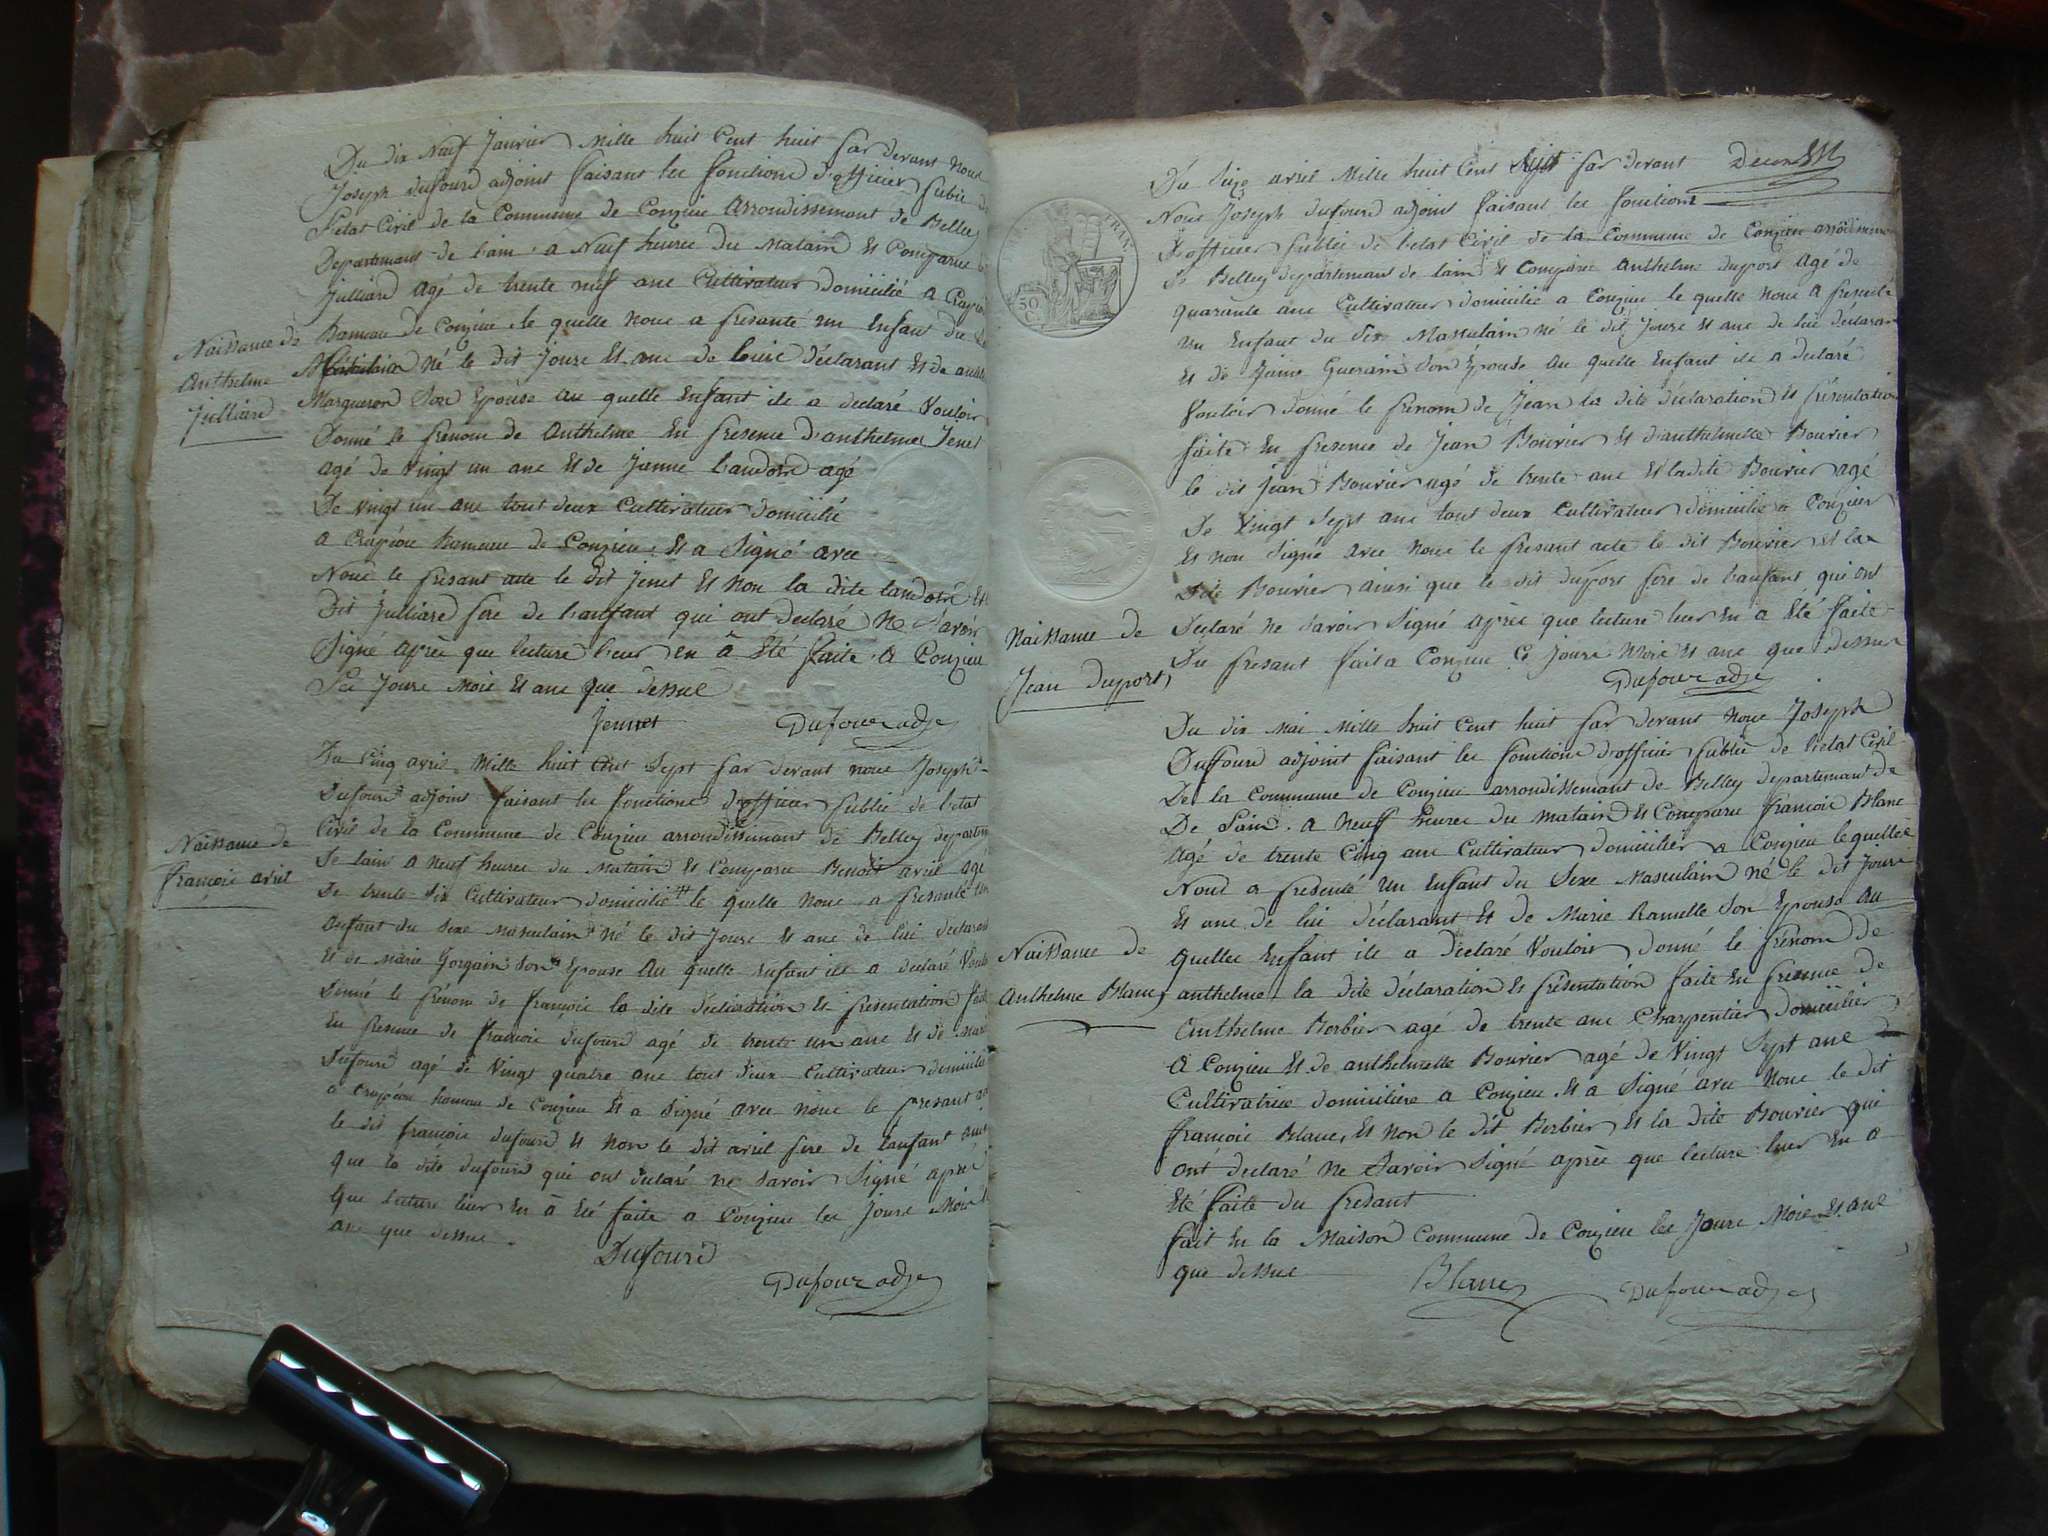 Du dix Neuf Janvier Mille huit Cent huit par devant Nous
Joseph dufourd adjoint faisant les fonctions D'officier public de
l'etat Civil de la Commune de Conzieu Arrondissement de Belley
Departement de Lain a Neuf heures Du Matain Et Comparus
Julliard agé de trente neuf ans Cultivateur Domicilié a
hameau de Conzieu le quelle nous a presanté un Enfant du
né le dit Jours Et ans de luis déclarant Et de
Margueron Son Epouse au quelle Enfant ile a declaré Vouloir
Donné le prenom de Anthelme En presence D'anthelme Jenet
agé de Vingt un ans Et de Janne landoud agé
De vingt un ans tout deux Cultivateur Domicilié
a Crapéou hameau de Conzieu Et a Signé avec
Nous le presant acte le dit Jenet Et Non la dite
Dit Julliard pere de L'anfant qui ont declaré Ne Savoir
Signé après que lecture leur En à Eté faite a Conzieu
Les Jours Mois Et ans que dessus
Jennet Dufour adj
Naissance de
Anthelme
Julliard
Du Cinq avril Mille huit Cent Sept par devant nous Joseph
Dufourd adjoint faisant les fonctions d'officier public de l'etat
Civil de la Commune de Conzieu arrondissemant de Belley
De lain a Neuf heures du Matain Et Comparu Benoit avril agé
De trente Six Cultivateur domicilié # le quelle nous a presanté un
anfant du Sexe masculain né le dit Jours Et ans de lui declarant
Et de marie Gorgain Son Epouse Au quelle Enfant ile a declaré
Donné le prenom de françois la dite declaration Et presentation
En presence de françois dufourd agé de trente un ans Et de
Dufourd agé de Vingt quatre ans tout deux Cultivateur
a Crapéou hameau de Conzieu Et a Signé avec nous le presant
le dit françois dufourd Et Non le dit avril pere de l'anfant
que la dite dufourd qui ont declaré ne Savoir Signé après
que lecture leur En à Eté faite a Conzieu les Jours Mois
ans que dessus.
Dufourd
Dufour adj
Naissance de
françois avril
Du Seize avril Mille huit Cent Sept par devant
Nous Joseph dufourd adjoint faisant les fonctions
D'officier public de l'etat Civil de la Commune de Conzieu
De Belley departemant de lain Et Comparu Anthelme duport Agé de
quarante ans Cultivateur domicilié a Conzieu le quelle nous a presenté
un Enfant du Sex Masculain né le dit Jours Et ans de lui declarant
Et de Janne Guerain Son Epouse au quelle Enfant ile a declaré
Vouloir donné le prenom de Jean la dite declaration Et présentation
faite En presence de Jean Bouvier Et d'anthelmette Bouvier
le dit Jean Bouvier agé de trente ans Et ladite Bouvier agé
De Vingt Sept ans tout deux Cultivateur domicilié a Conzieu
Et non Signé avec nous le presant acte le dit Bouvier Et la
dite Bouvier ainsi que le dit duport pere de l'anfant qui ont
Declaré ne Savoir Signé après que lecture leur En à Eté faite
Du presant fait a Conzieu Ce Jours Mois Et ans que dessus
Dufour adj
Naissance de
Jean duport
Du dix Mai Mille huit Cent huit par devant Nous Joseph
Duffourd adjoint faisant les fonctions d'officier public de l'etat Civil
De la Commune de Conzieu arrondissemant de Belley departemant de
De Lain. a Neuf heures du matain Et Comparu françois Blanc
Agé de trente Cinq ans Cultivateur domicilier a Conzieu lequelle
Nous a presenté un Enfant du Sexe Masculain né le dit Jours
Et ans de lui déclarant Et de Marie Ramelle Son Epouse Au
quelles Enfant ile a declaré Vouloir donné le prénom de
anthelme la dite déclaration Et présentation faite En presence de
Anthelme Berbier agé de trente ans Charpentier domicilier
A Conzieu Et de anthelmette Bouvier agé de Vingt Sept ans
Cultivatrice domiciliere a Conzieu Et a Signé avec Nous le dit
françois Blanc, Et Non le dit Berbier Et la dite Bouvier qui
ont declaré ne Savoir Signé après que lecture leur En a
Eté faite du presant
fait En la Maison Commune de Conzieu les Jours Mois Et ans
que dessus
Blanc Dufour adj
Naissance de
Anthelme Blanc